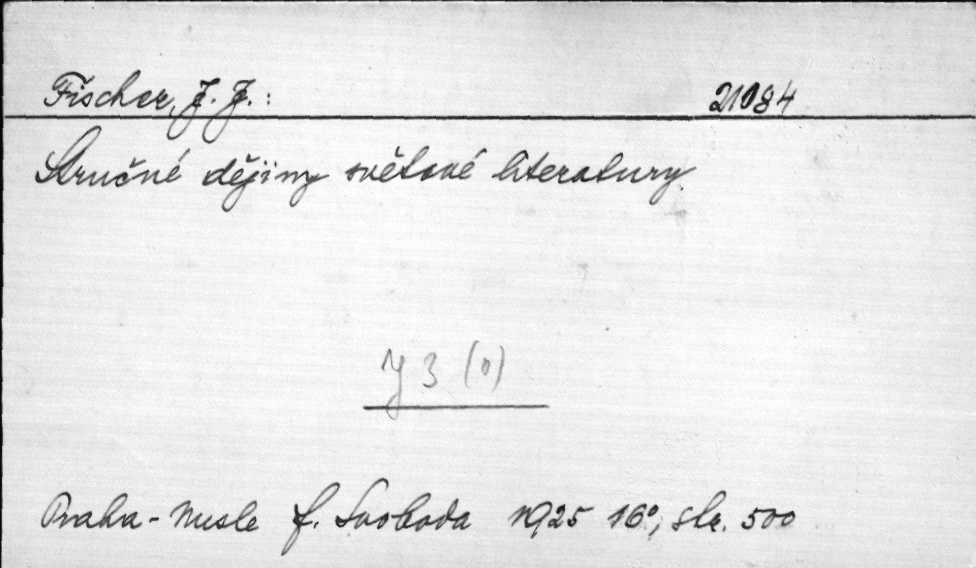 Fischer, J. J.: 21084
Stručné dějiny světové literatury.
Y 3 (0)
Praha-Nusle J. Svoboda 1925 16°, str. 500